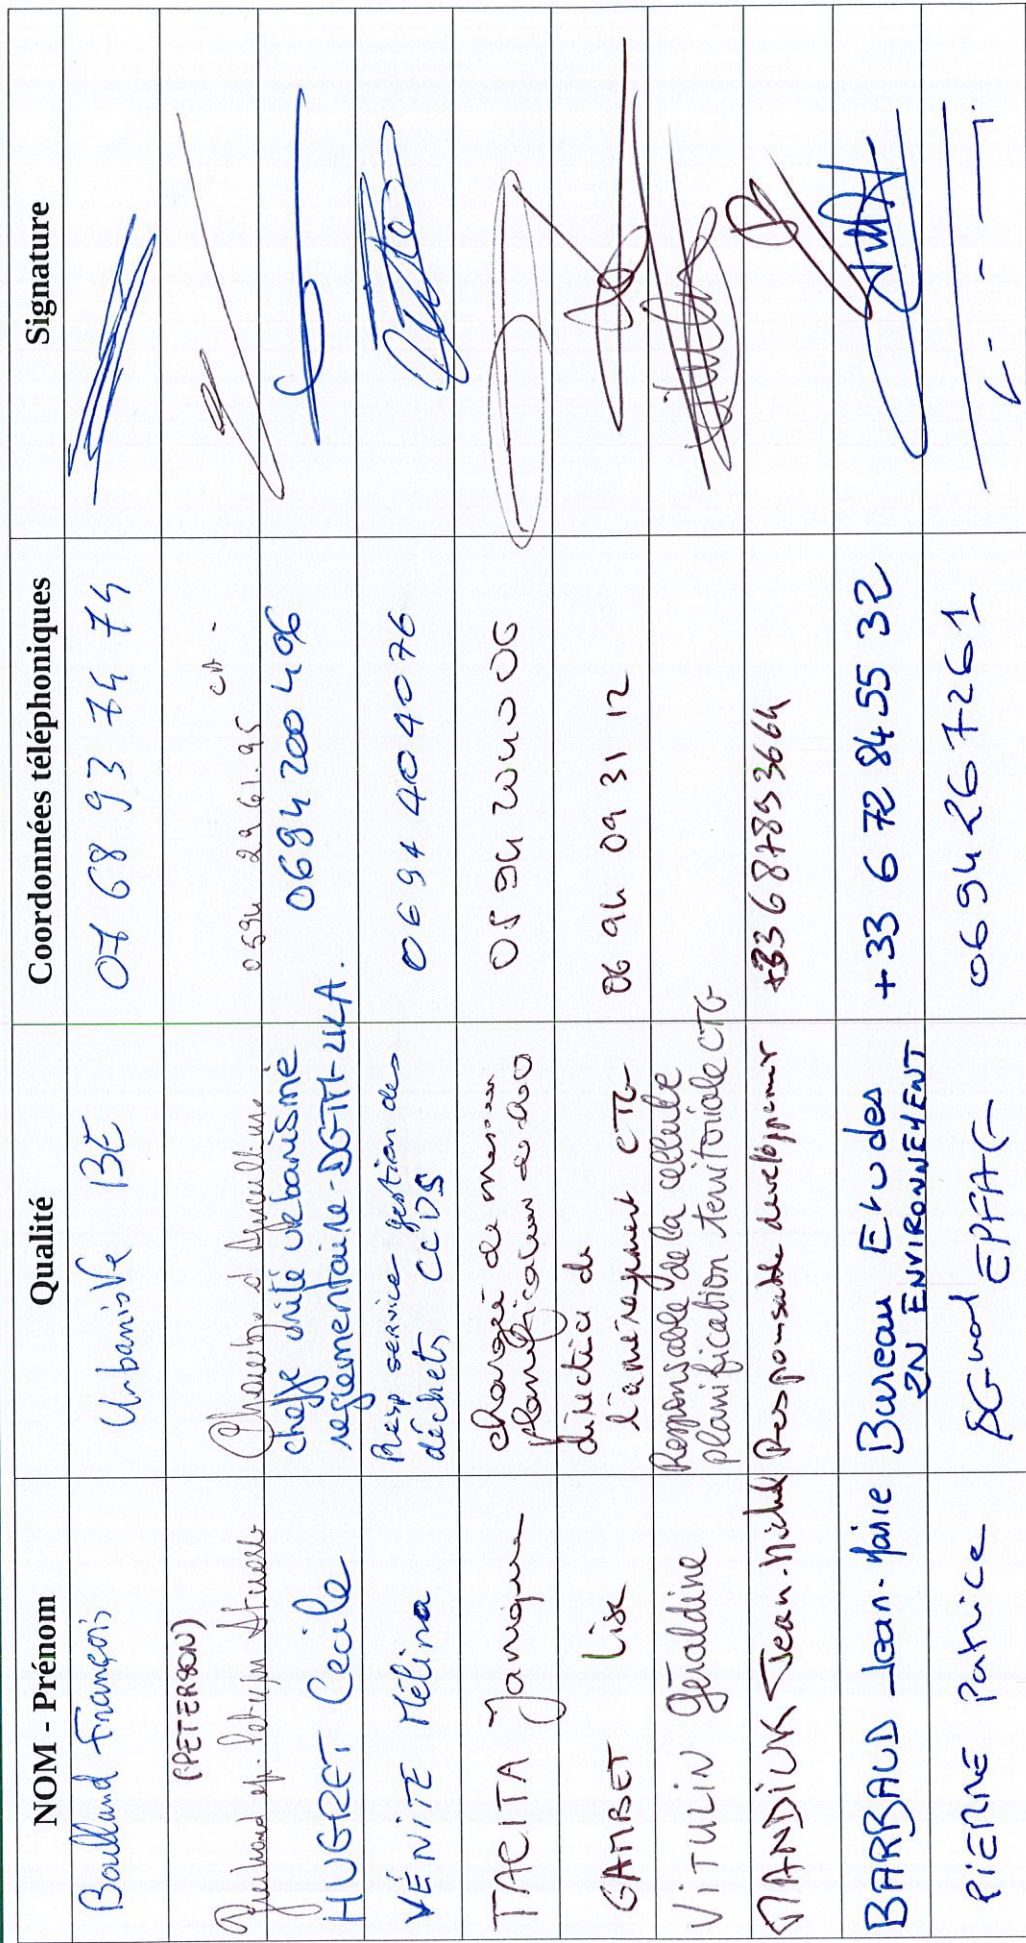 NOM - Prénom
Qualité
Coordonnées téléphoniques
Signature
Boulland François
Urbaniste BE
07 68 93 74 74
(PETERSON)
Chambre d'Agriculture
0594 29 61 95
HUGRET Cécile
cheffe unité urbanisme
reglementaire-DGTM-
0694 200 406
VÉNITE Mélina
Resp service gestion des
déchets CCDS
0694 404076
TACITA Janique
chargée de mission
planification
0594
GAMBET Lise
directrice de
l'aménagement CTG
06 94 09 31 12
VITULIN Géraldine
Responsable de la cellule
planification territoriale CTG
MANDIUK Jean-Michel
Responsable developpement
+33 687893664
BARBAUD Jean-Marie
Bureau Etudes
EN ENVIRONNEMENT
+33 6 72 84 55 32
PIERRE Patrice
EPFAG
0694267261